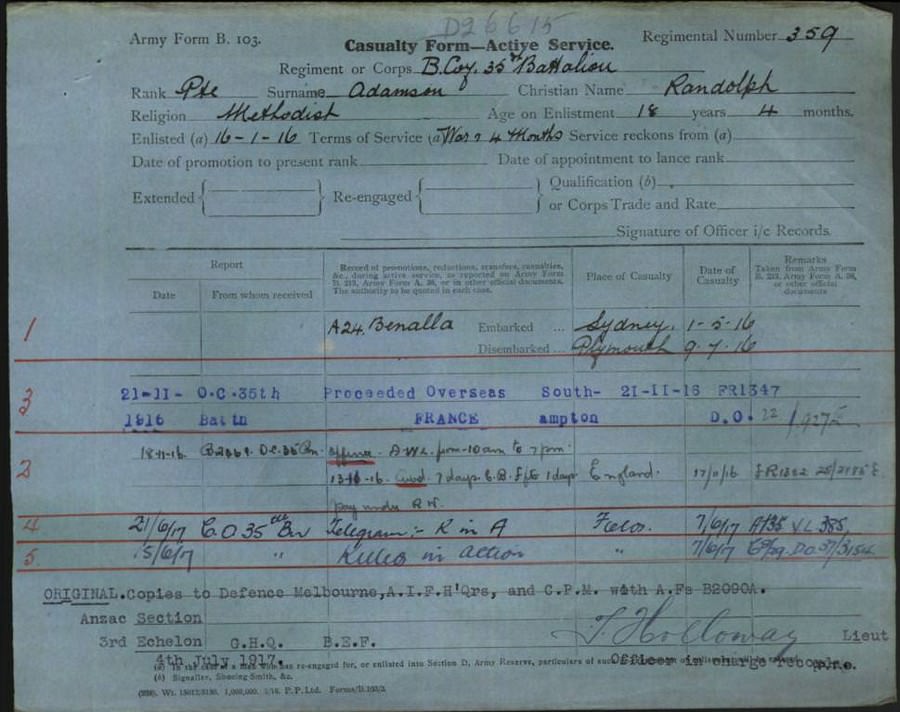 D26615
Army Form B. 103.
Casualty Form—Active Service.
Regimental Number 359
Regiment or Corps B.Coy. 35th Battalion
Rank Pte Surname Adamson Christian Name Randolph
Religion Methodist Age on Enlistment 18 years 4 months.
Enlisted (a) 16-1-16 Terms of Service (a) War & 4 Months Service reckons from (a)
Date of promotion to present rank Date of appointment to lance rank
Extended Re-engaged Qualification (b)
or Corps Trade and Rate
Signature of Officer i/c Records.
Report
Date From whom received
Record of promotions, reductions, transfers, casualties,
&c., during active service, as reported on Army Form
B. 213, Army Form A. 36, or in other official documents.
The authority to be quoted in each case.
Place of Casualty
Date of
Casualty
Remarks
Taken from Army Form
B. 213, Army Form A. 36,
or other official
documents
1
A24. Benalla Embarked ... Sydney. 1-5-16
Disembarked ... Plymouth 9-7-16
3
21-11- O.C.35th Proceeded Overseas South- 21-11-16 FR1347
1916 Battn FRANCE ampton D.O. 22
2
18-11-16. O.C. 35 Bn. Offence. A.W.L. from 10am to 7pm
13-11-16. Awd. 7 days C.B. 1 days England. 17/11/16
pay under R.W.
4
21/6/17 C.O 35th Bn Telegram:- K in A Field. 7/6/17 A35 V.L. 385
5
15/6/17 " Killed in action " 7/6/17
ORIGINAL.Copies to Defence Melbourne,A.I.F.H'Qrs, and C.P.M. with A.Fs B2090A.
Anzac Section
3rd Echelon G.H.Q. B.E.F.
T. Holloway Lieut
4th July 1917. Officer in charge records.
(a) In the case of a man who has re-engaged for, or enlisted into Section D, Army Reserve, particulars of such
(b) Signaller, Shoeing-Smith, &c.
1,000,000. P.P. Ltd. Forms/B.103/2